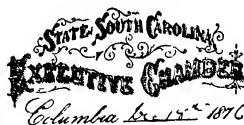 STATE OF SOUTH CAROLINA
EXECUTIVE CHAMBER
Columbia 1876